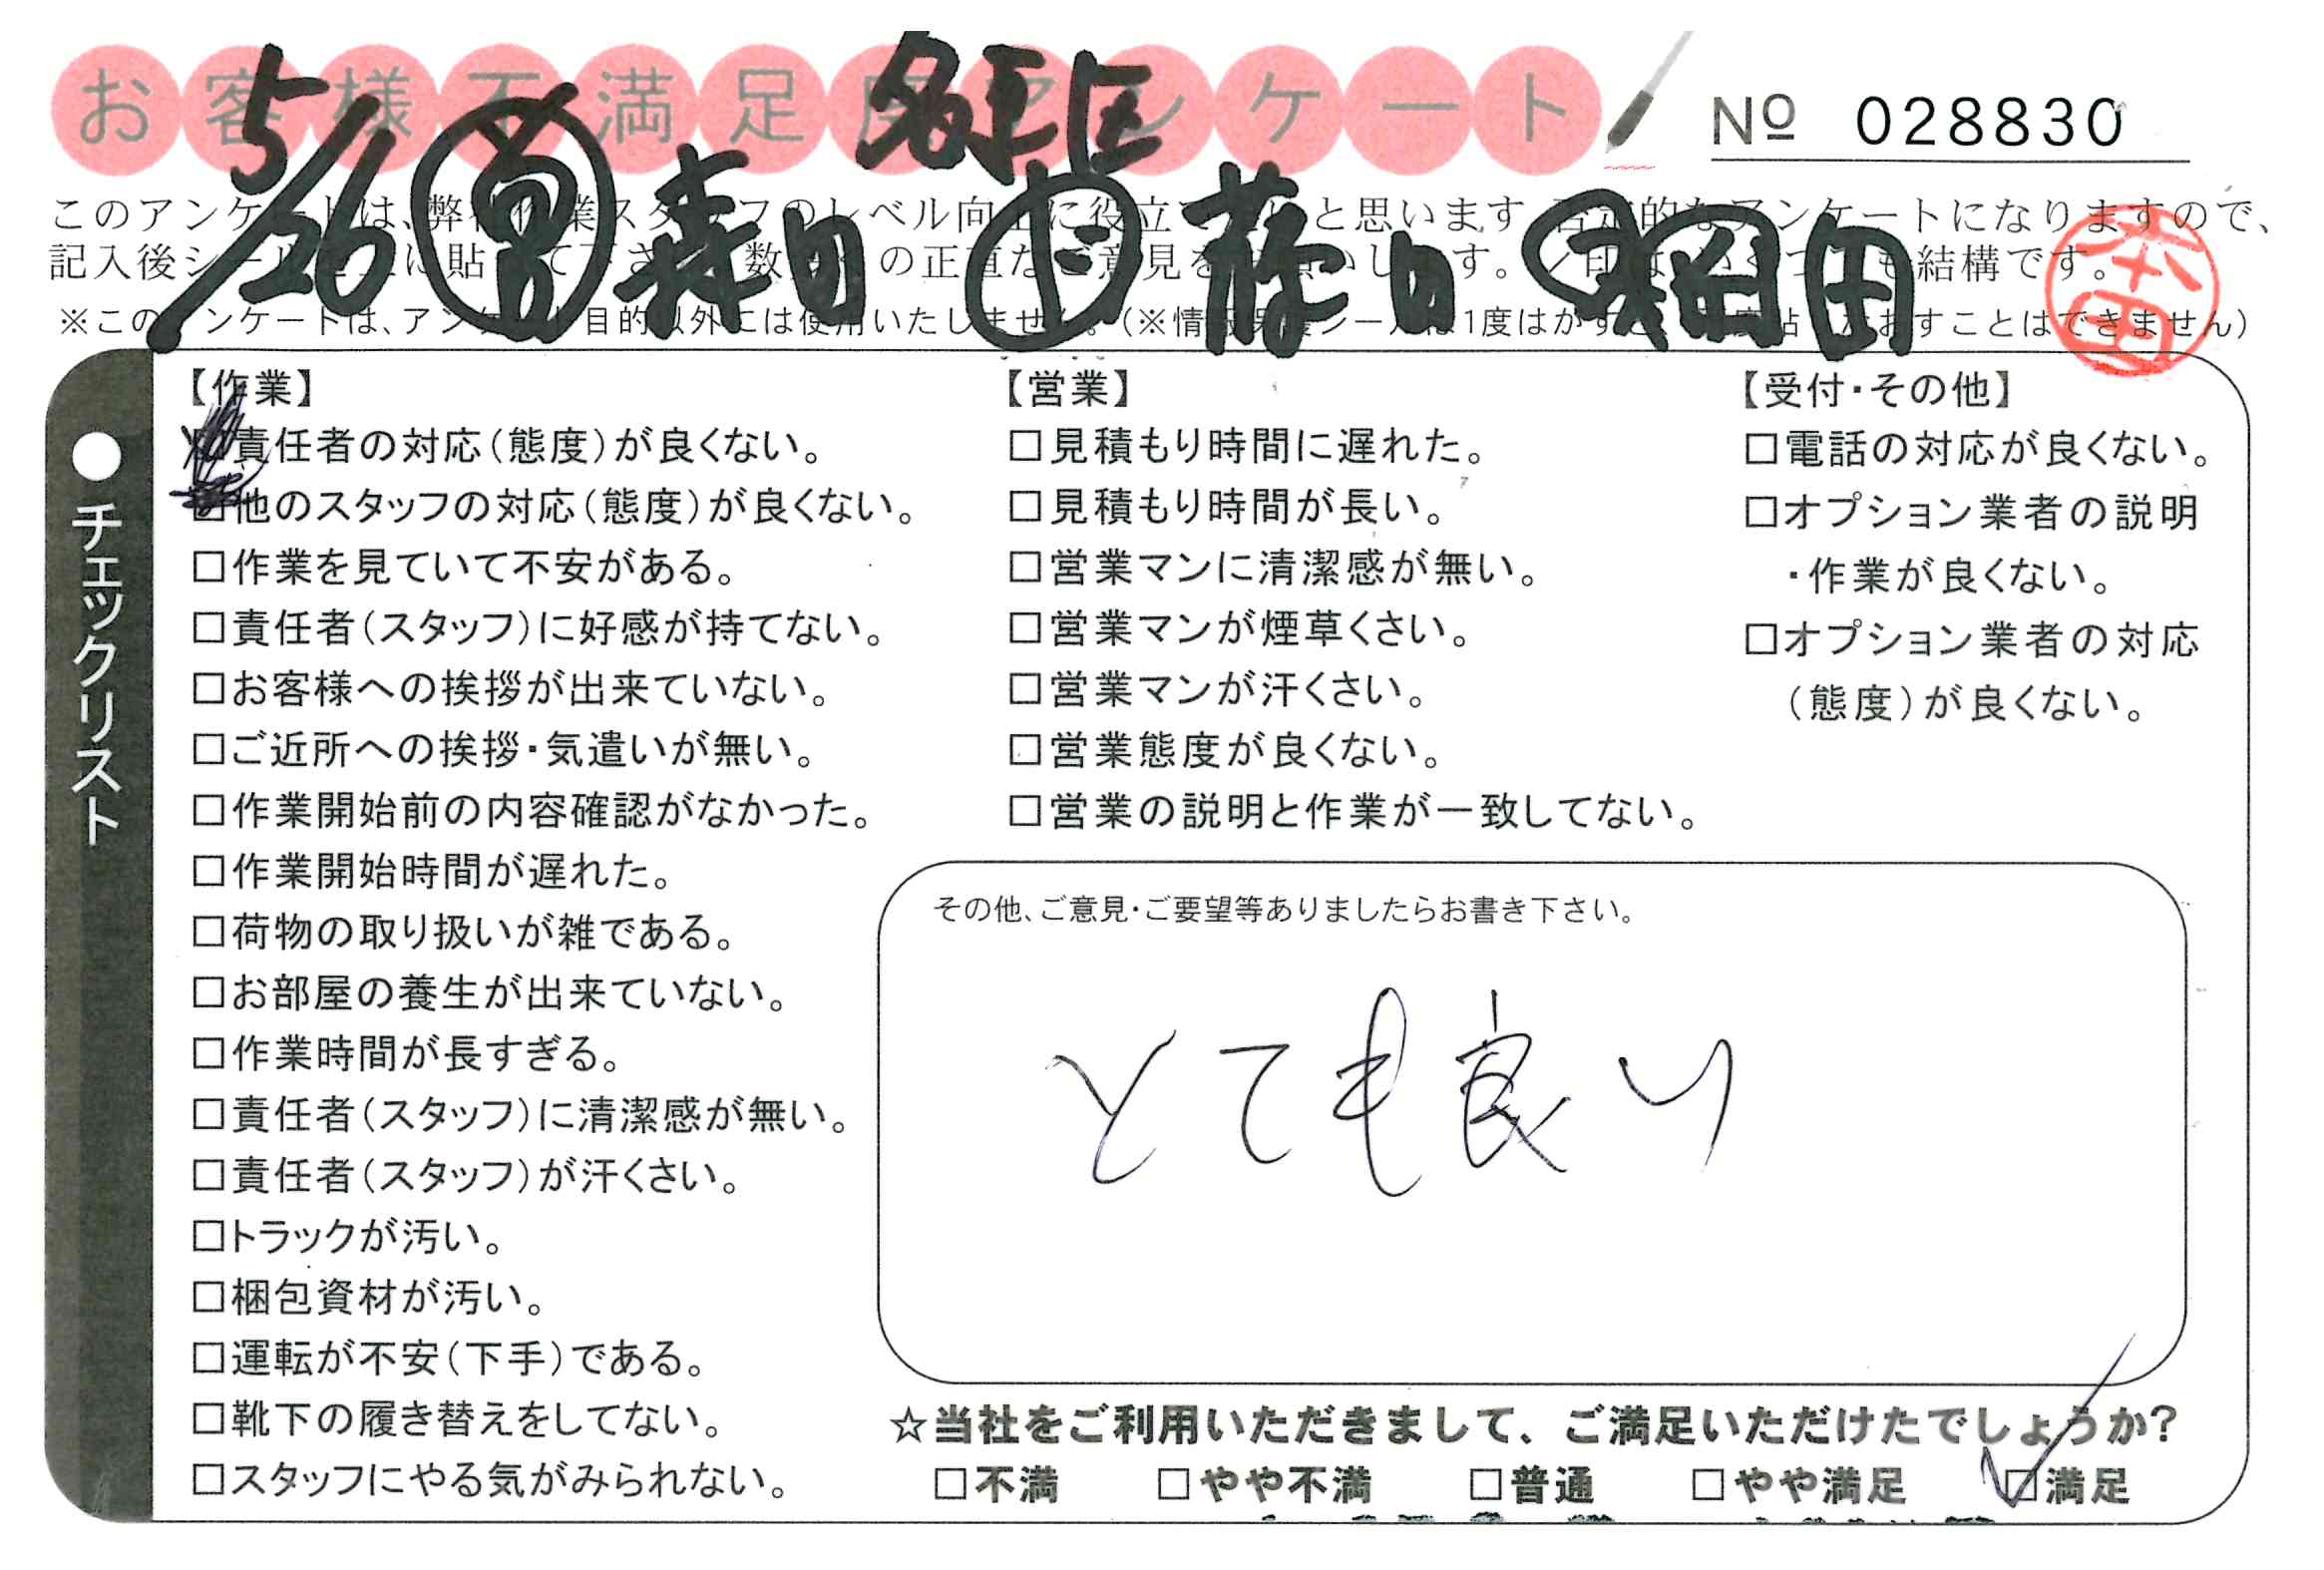 お客様不満足度アンケート
名東区
№ 028830
5/26
このアンケートは、弊社作業スタッフのレベル向上に役立てたいと思います。否定的なアンケートになりますので、
記入後シールを上に貼って下さい。
の正直なご意見をお願いします。
も結構です。
※このアンケートは、アンケート目的以外には使用いたしません。（※情報保護シールは1度はがすと、再度貼りなおすことはできません）
本田
●チェックリスト
【作業】
□責任者の対応（態度）が良くない。
□他のスタッフの対応（態度）が良くない。
□作業を見ていて不安がある。
□責任者（スタッフ）に好感が持てない。
□お客様への挨拶が出来ていない。
□ご近所への挨拶・気遣いが無い。
□作業開始前の内容確認がなかった。
□作業開始時間が遅れた。
□荷物の取り扱いが雑である。
□お部屋の養生が出来ていない。
□作業時間が長すぎる。
□責任者（スタッフ）に清潔感が無い。
□責任者（スタッフ）が汗くさい。
□トラックが汚い。
□梱包資材が汚い。
□運転が不安（下手）である。
□靴下の履き替えをしてない。
□スタッフにやる気がみられない。
【営業】
□見積もり時間に遅れた。
□見積もり時間が長い。
□営業マンに清潔感が無い。
□営業マンが煙草くさい。
□営業マンが汗くさい。
□営業態度が良くない。
□営業の説明と作業が一致してない。
【受付・その他】
□電話の対応が良くない。
□オプション業者の説明
・作業が良くない。
□オプション業者の対応
（態度）が良くない。
その他、ご意見・ご要望等ありましたらお書き下さい。
とても良い
☆当社をご利用いただきまして、ご満足いただけたでしょうか?
□不満 □やや不満 □普通 □やや満足 ☑満足